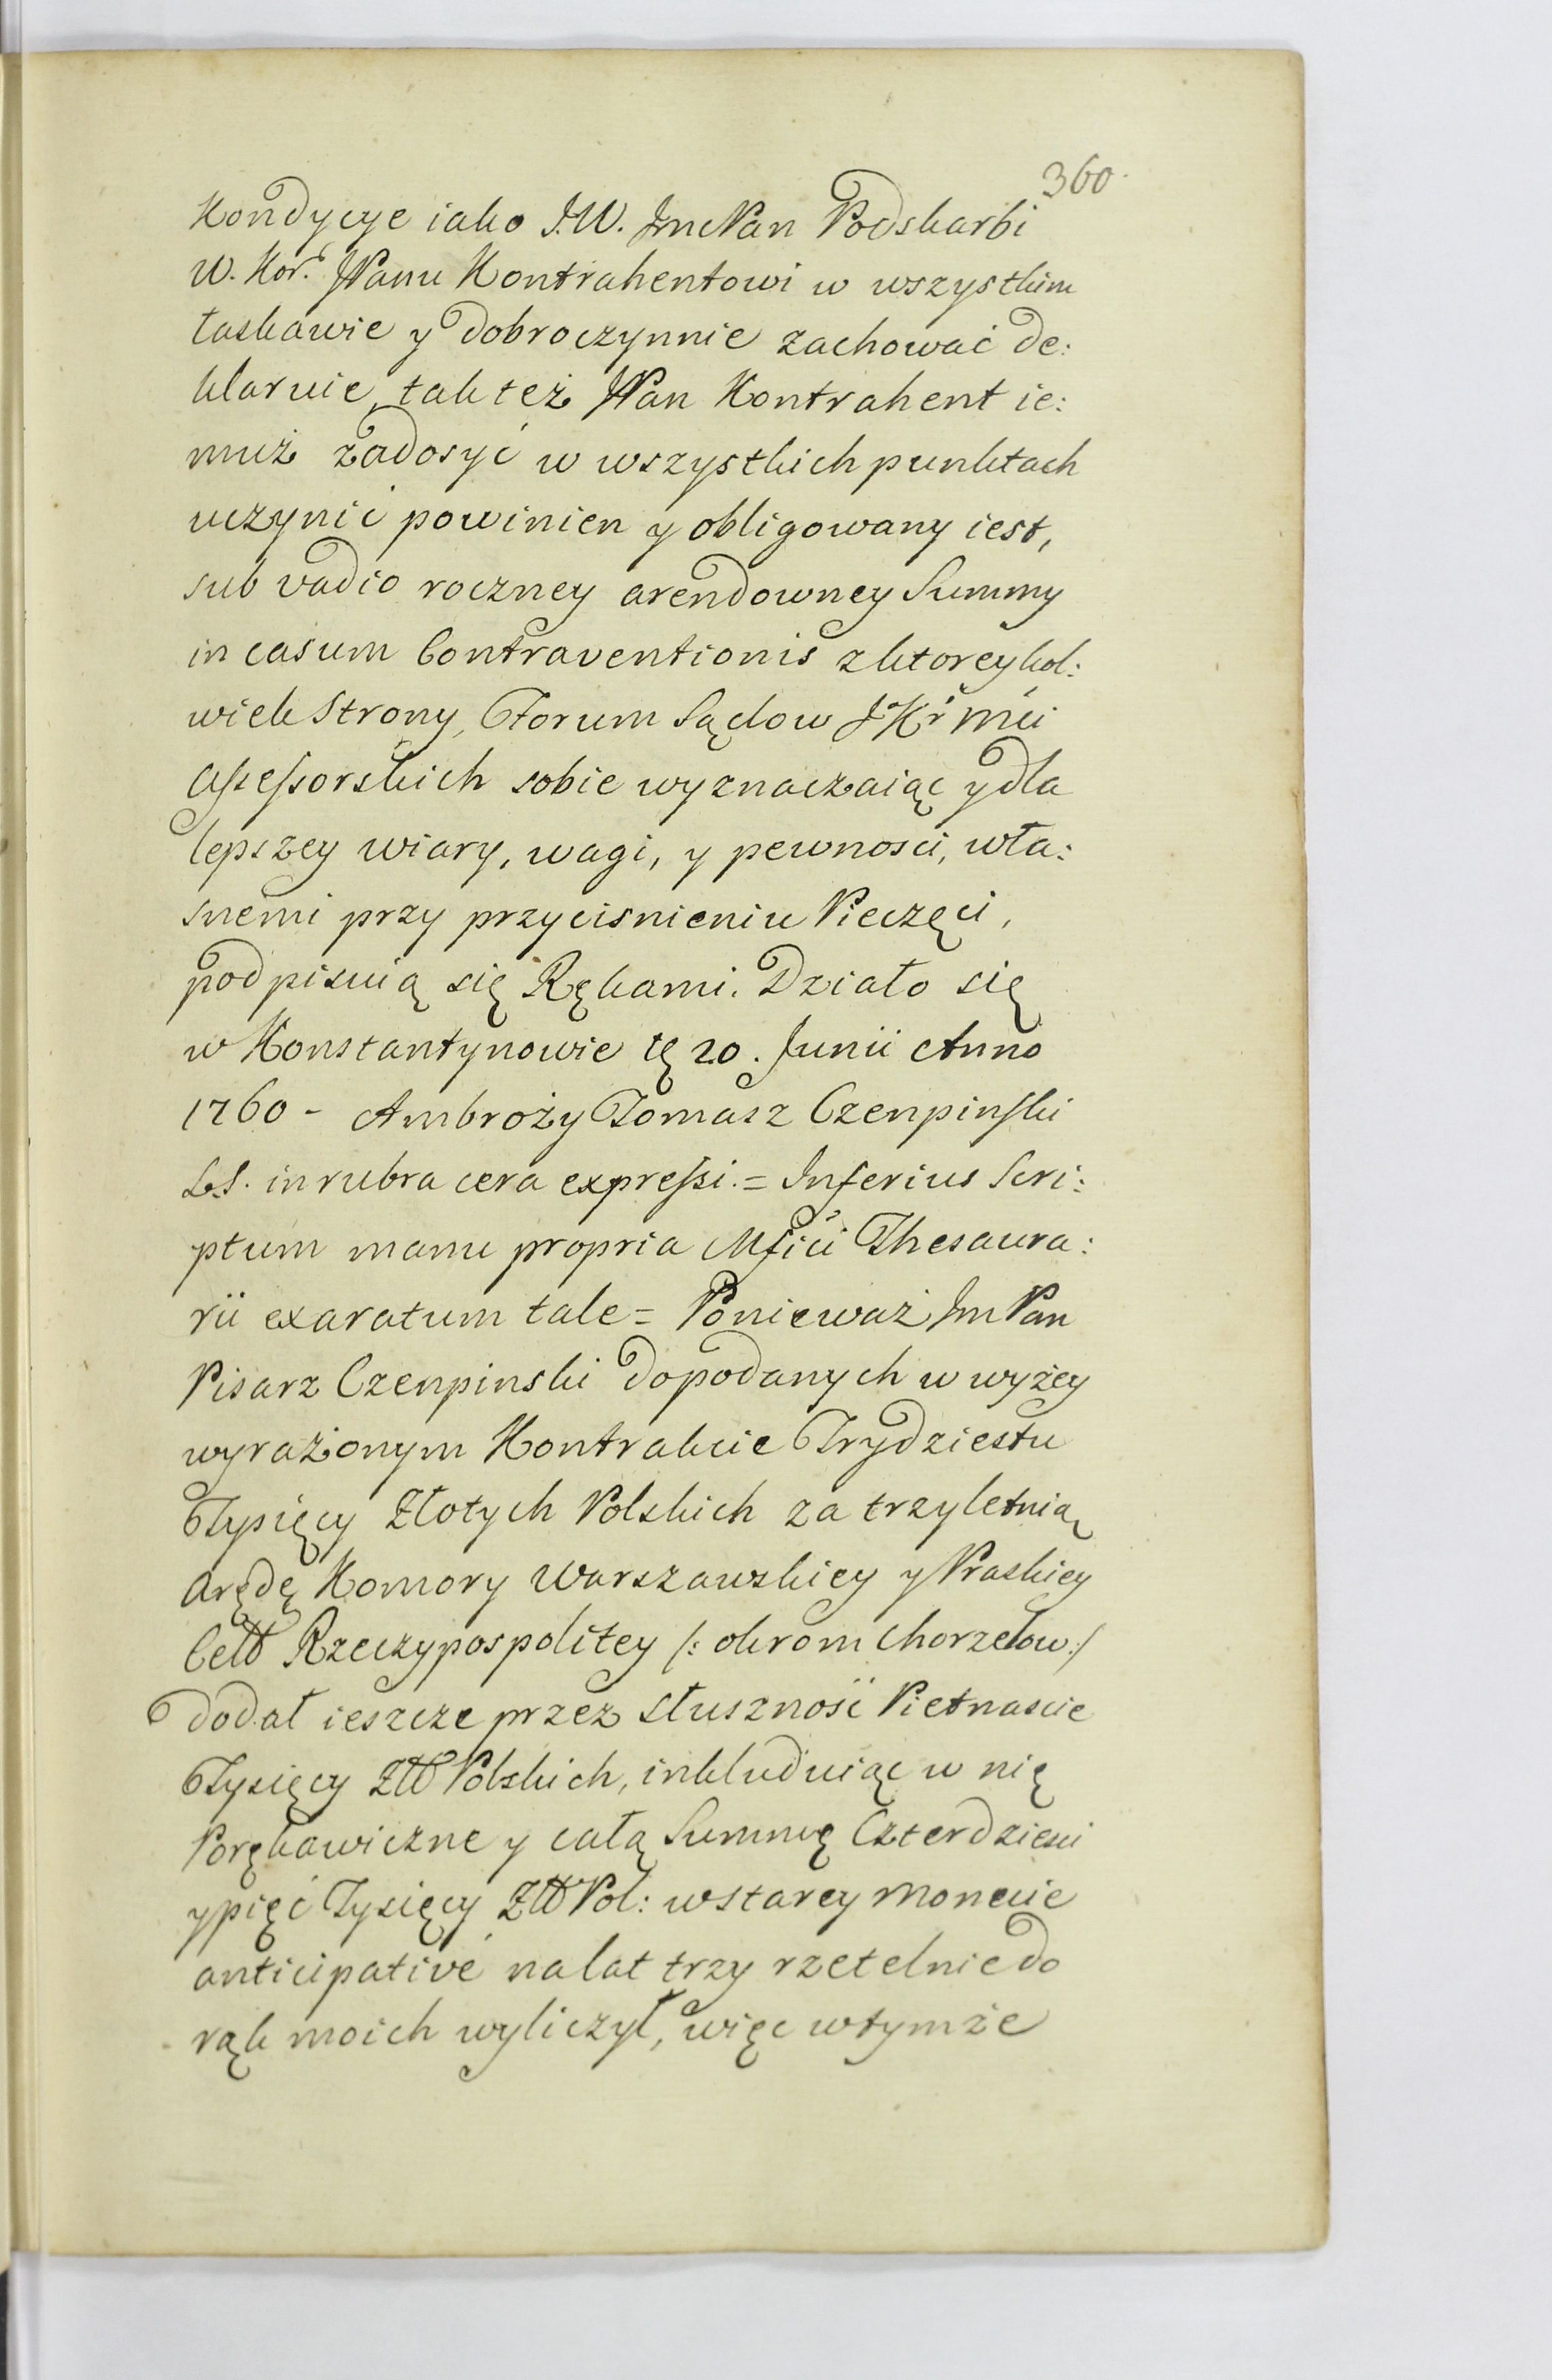 360.
Kondycye iako J.W. Jmc Pan Podskarbi
W. Kor. JPanu Kontrahentowi w wszystkim
łaskawie y dobroczynnie zachować de:
klaruie, tak też JPan Kontrahent ie:
muż zadosyć w wszystkich punktach
uczynić powinien y obligowany iest,
sub vadio roczney arendowney Summy
in casum Contraventionis z ktoreykol:
wiek Strony, Forum Sądow JKr Mći
Assessorskich sobie wyznaczaiąc y dla
lepszey wiary, wagi, y pewności, wła:
snemi przy przycisnieniu Pieczęci,
podpisuią się Rękami. Działo się
w Konstantynowie tę 20. Junii Anno
1760 - Ambroży Tomasz Czenpinski
L.S. in rubra cera expressi. = Inferius Scri:
ptum manu propria Mfici Thesaura:
rii exaratum tale = Ponieważ Jm Pan
Pisarz Czenpinski do podanych w wyżey
wyrażonym Kontrakcie Trydziestu
Tysięcy Złotych Polskich za trzyletnią
Arędę Komory Warszawskiey y Praskiey
Cełł Rzeczypospolitey /: okrom Chorzelow :/
dodał ieszcze przez słuszność Pietnascie
Tysięcy Złł Polskich, inkluduiąc w nię
Porękawiczne y całą Summę Czterdziesci
y pięć Tysięcy Złł Pol: w starey Monecie
anticipativé na lat trzy rzetelnie do
rąk moich wyliczył, więc w tymże